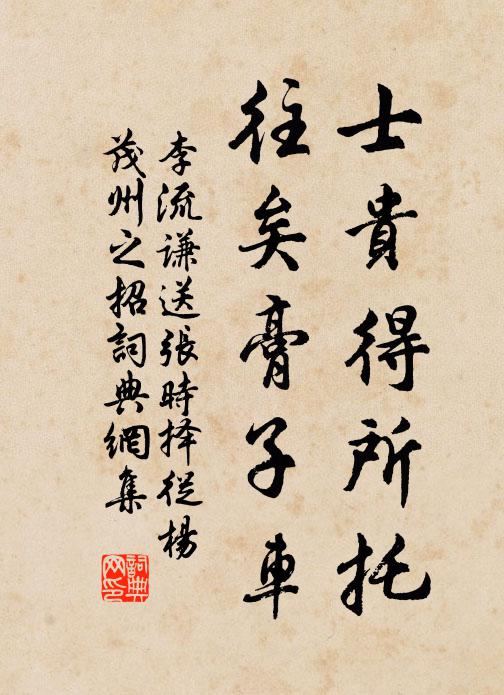 士貴得所托
往矣膏子車
李流谦送張時择從楊
茂州之招詞典網集
詞典网印